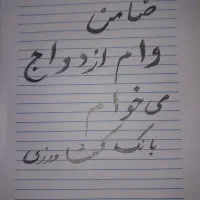 ضامن
وام ازدواج
می خوام
بانک کشاورزی